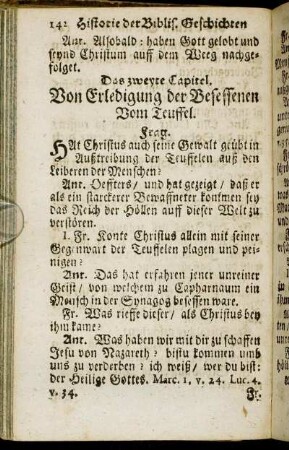 142 Historie der Biblis. Geschichten
Ant. Alsobald: haben Gott gelobt und
seynd Christum auff dem Weeg nachge-
folget.
Das zweyte Capitel.
Von Erledigung der Besessenen
Vom Teuffel.
Frag.
HAt Christus auch seine Gewalt geübt in
Außtreibung der Teuffelen auß den
Leiberen der Menschen?
Ant. Oeffters/ und hat gezeigt/ daß er
als ein starckerer Bewaffneter kommen sey
das Reich der Höllen auff dieser Welt zu
verstören.
1. Fr. Konte Christus allein mit seiner
Gegenwart der Teuffelen plagen und pei-
nigen?
Ant. Das hat erfahren jener unreiner
Geist/ von welchem zu Capharnaum ein
Mensch in der Synagog besessen ware.
Fr. Was rieffe dieser/ als Christus bey
ihm kame?
Ant. Was haben wir mit dir zu schaffen
Jesu von Nazareth? bistu kommen umb
uns zu verderben? ich weiß/ wer du bist:
der Heilige Gottes. Marc. 1. v. 24. Luc. 4.
v. 34. Fr.